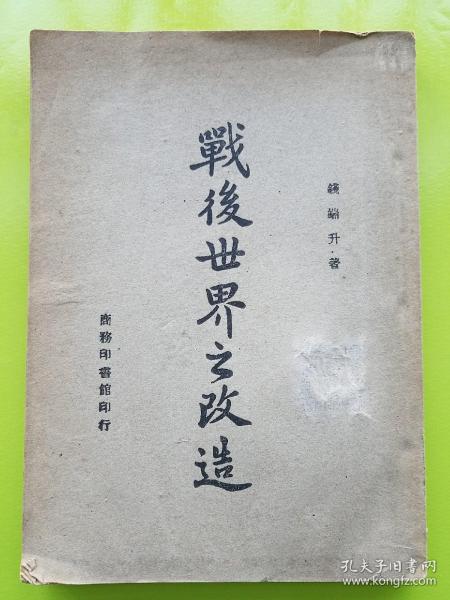 錢端升·著
戰後世界之改造
商務印書館印行
孔夫子旧书网
www.kongfz.com